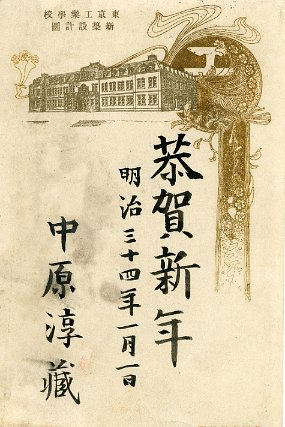 東京工業學校
新築設計圖
恭賀新年
明治三十四年一月一日
中原淳藏